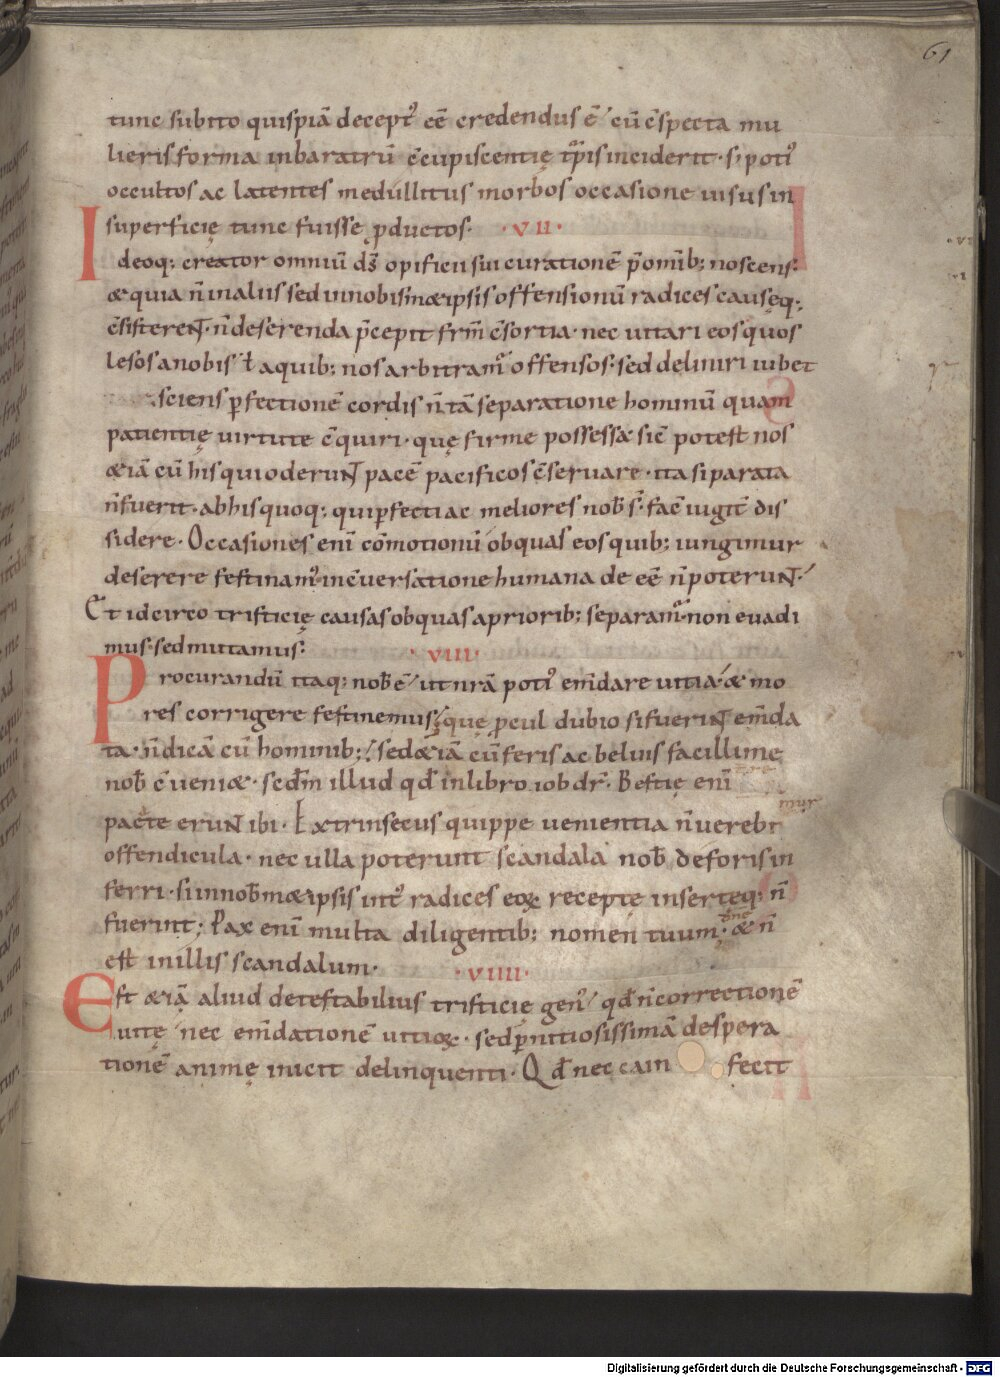 61
tunc subito quispiā decept᷒ eē credendus ē cū c̄specta mu
lieris forma inbaratrū c̄cupiscentię tp̄is inciderit· s; poti᷒
occultos ac latentes medullitus morbos occasione uisus in
superficię tunc fuisse ꝓductos· ·VII·
Ideoq; creator omniū ds̄ opificii sui curationē p̄ omib; noscens·
& quia n̄ in aliis sed in nobism&ipsis offensionū radices causęq;
c̄sisterent· n̄ deserenda p̄cepit frm̄ c̄sortia· nec uitari eos quos
lesos a nobis ł a quib; nos arbitram᷒ offensos· sed deliniri iubet
sciens ꝑfectionē cordis n̄ tā separatione hominū quam
patientię uirtute c̄quiri· quę firme possessa sic̄ potest nos
&iā cū his qui oderunt pacē pacificos c̄seruare· ita si parata
n̄ fuerit· ab his quoq; qui ꝑfecti ac meliores nob̄ s̄· fac̄ iugit̄ dis
sidere· Occasiones eni cōmotionū ob quas eos quib; iungimur
deserere festinam᷒· in c̄uersatione humana deeē n̄ poterunt·
Et idcirco tristicię causas ob quas a priorib; separam᷒· non euadi
mus· sed mutamus· ·VIII·
Procurandū itaq; nob̄ ē ut nr̄a poti᷒ em̄dare uitia· & mo
res corrigere festinemus· quę ꝓcul dubio si fuerint em̄da
ta· n̄ dicā cū hominib; sed &iā cū feris ac beluis facillime
nob̄ c̄ueni&· scdm̄ illud qd̄ in libro iob dr̄· Bestię eni
pacatę erunt ibi· Extrinsecus quippe uenientia n̄ uerebi
mur
offendicula· nec ulla poterunt scandala nob̄ deforis in
ferri· si in nob̄m&ipsis int᷒ radices eoꝝ receptę insertęq; n̄
fuerint; Pax eni multa diligentib; nomen tuum dn̄e· & n̄
est in illis scandalum· ·VIIII·
Est &iā aliud detestabilius tristicię gen᷒ qd̄ n̄ correctionē
uitę nec em̄dationē uitioꝝ· sed ꝑnitiosissimā despera
tionē animę inicit delinquenti· Qd̄ nec cain fecit
Digitalisierung gefördert durch die Deutsche Forschungsgemeinschaft - DFG